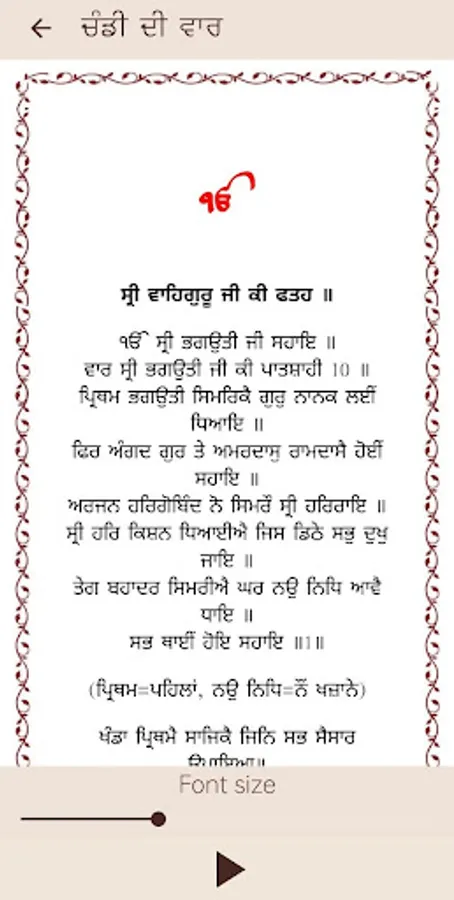 ਚੰਡੀ ਦੀ ਵਾਰ
ੴ
ਸ੍ਰੀ ਵਾਹਿਗੁਰੂ ਜੀ ਕੀ ਫਤਹ ॥
ੴ ਸ੍ਰੀ ਭਗਉਤੀ ਜੀ ਸਹਾਇ ॥
ਵਾਰ ਸ੍ਰੀ ਭਗਉਤੀ ਜੀ ਕੀ ਪਾਤਸ਼ਾਹੀ 10 ॥
ਪ੍ਰਿਥਮ ਭਗਉਤੀ ਸਿਮਰਿਕੈ ਗੁਰੁ ਨਾਨਕ ਲਈਂ
ਧਿਆਇ ॥
ਫਿਰ ਅੰਗਦ ਗੁਰ ਤੇ ਅਮਰਦਾਸੁ ਰਾਮਦਾਸੈ ਹੋਈਂ
ਸਹਾਇ ॥
ਅਰਜਨ ਹਰਿਗੋਬਿੰਦ ਨੋ ਸਿਮਰੌ ਸ੍ਰੀ ਹਰਿਰਾਇ ॥
ਸ੍ਰੀ ਹਰਿ ਕਿਸ਼ਨ ਧਿਆਈਐ ਜਿਸ ਡਿਠੇ ਸਭੁ ਦੁਖੁ
ਜਾਇ ॥
ਤੇਗ ਬਹਾਦਰ ਸਿਮਰੀਐ ਘਰ ਨਉ ਨਿਧਿ ਆਵੈ
ਧਾਇ ॥
ਸਭ ਥਾਈਂ ਹੋਇ ਸਹਾਇ ॥1॥
(ਪ੍ਰਿਥਮ=ਪਹਿਲਾਂ, ਨਉ ਨਿਧਿ=ਨੌਂ ਖਜ਼ਾਨੇ)
ਖੰਡਾ ਪ੍ਰਿਥਮੈ ਸਾਜਿਕੈ ਜਿਨਿ ਸਭ ਸੈਸਾਰ
ਉਪਾਇਆ॥
Font size